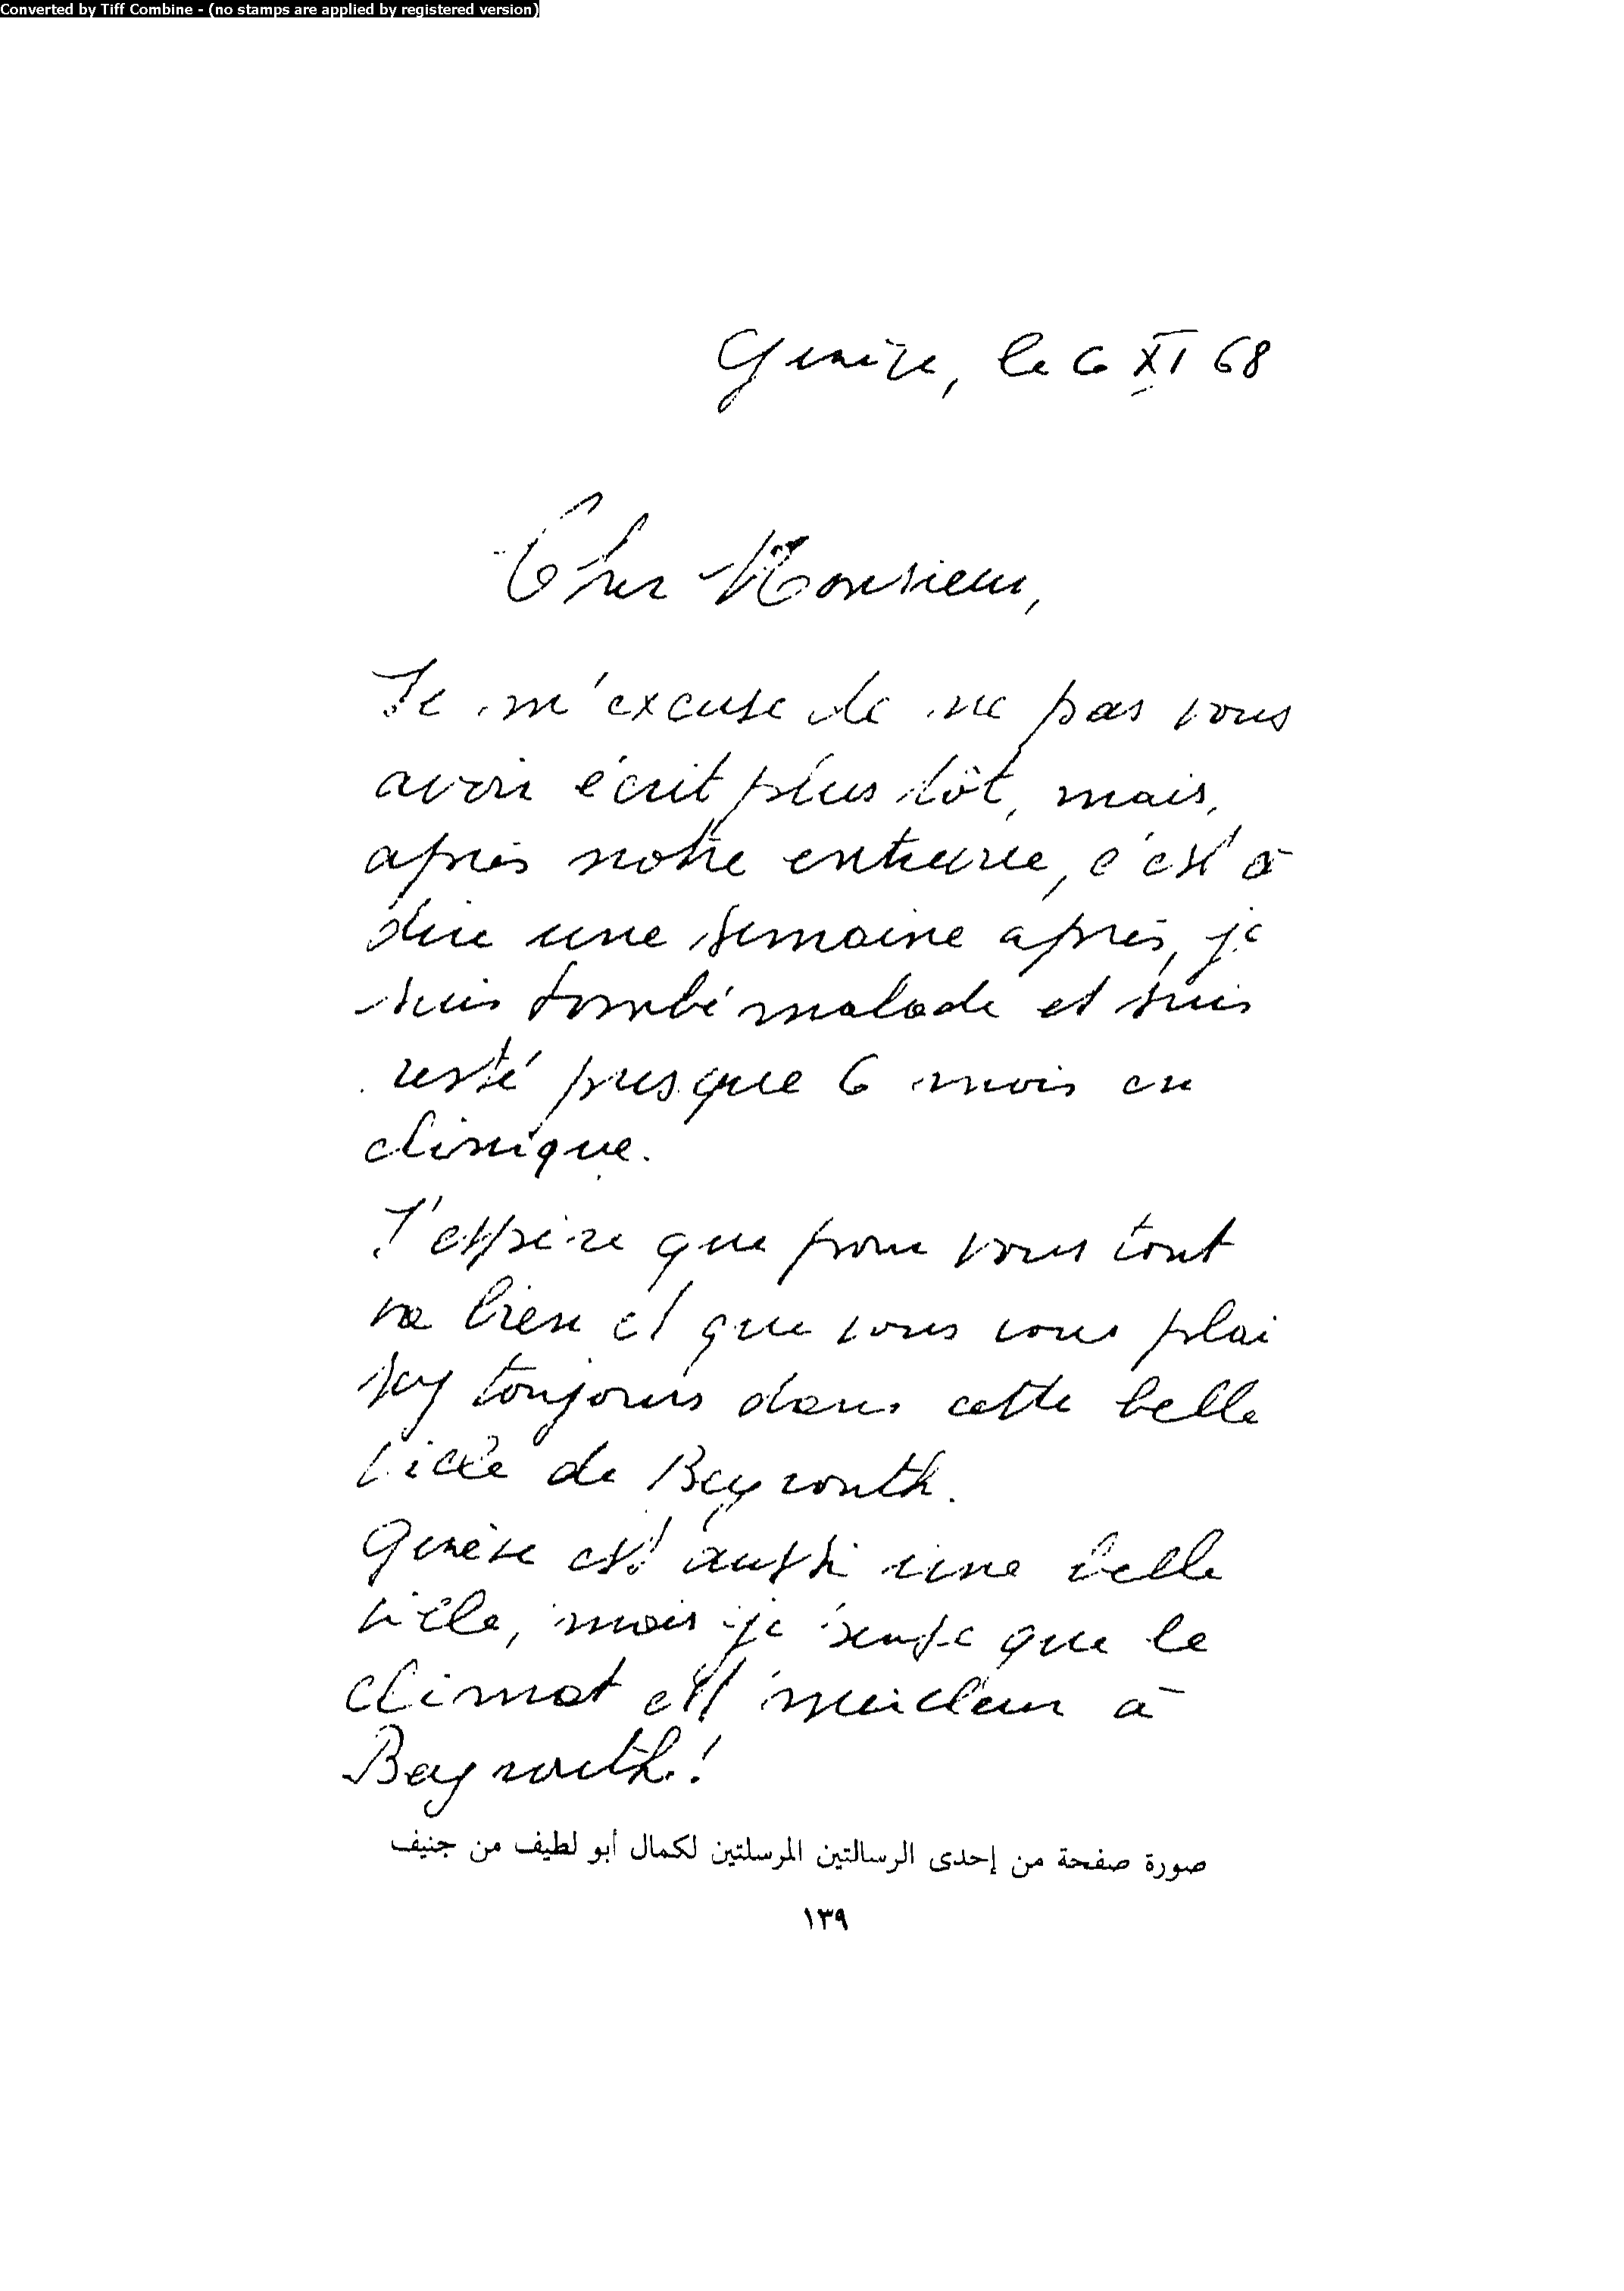 Converted by Tiff Combine - (no stamps are applied by registered version)
Genève, le 6 XI 68
Cher Monsieur,
Je m'excuse de ne pas vous
avoir écrit plus tôt, mais,
après notre entrevue, c'est à
dire une semaine après, je
suis tombé malade et suis
resté presque 6 mois en
clinique.
J'espère que pour vous tout
va bien et que vous vous plai
sez toujours dans cette belle
ville de Beyrouth.
Genève est aussi une belle
ville, mais je pense que le
climat est meilleur à
Beyrouth!
صورة صفحة من إحدى الرسالتين المرسلتين لكمال أبو لطيف من جنيف
١٣٩